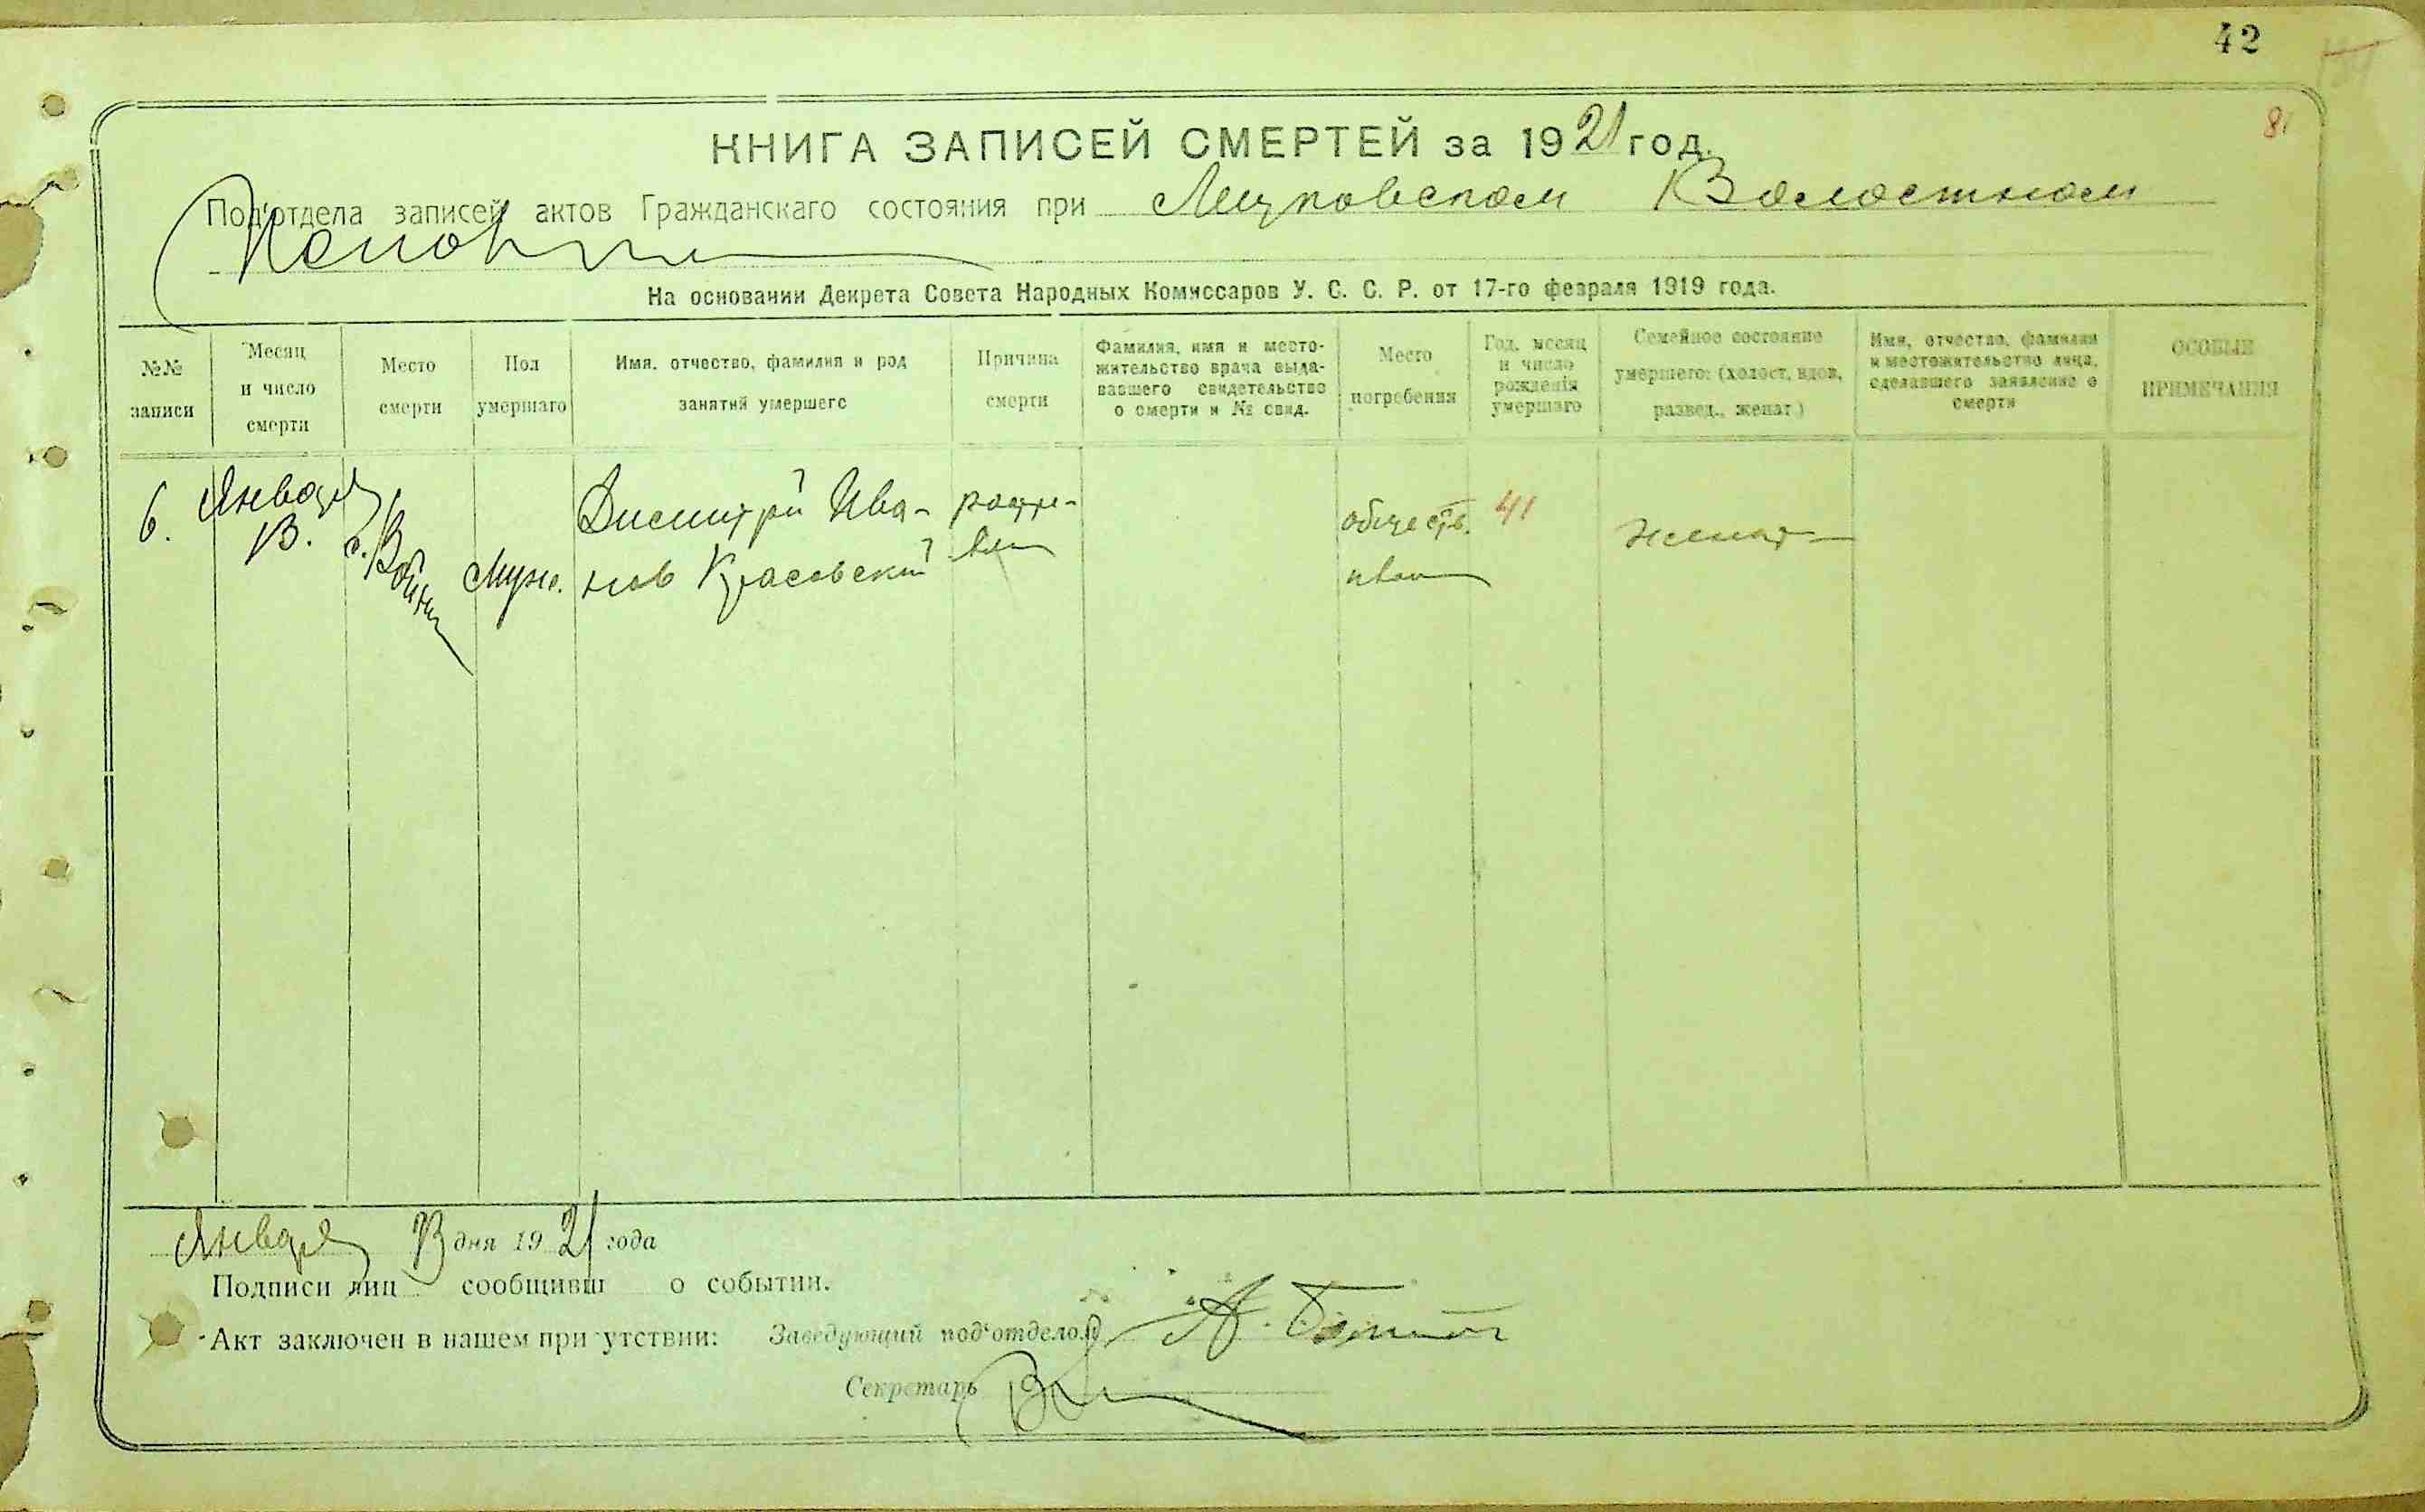 42
81
КНИГА ЗАПИСЕЙ СМЕРТЕЙ за 1921 год.
Под'отдела записей актов Гражданскаго состояния при Волостном
На основании Декрета Совета Народных Комиссаров У. С. С. Р. от 17-го февраля 1919 года.
№№ записи
Месяц и число смерти
Место смерти
Пол умершаго
Имя, отчество, фамилия и род занятий умершего
Причина смерти
Фамилия, имя и место-
жительство врача выда-
вавшего свидетельство
о смерти и № свид.
Место погребения
Год, месяц
и число
рождения
умершаго
Семейное состояние
умершего: (холост, вдов,
развед., женат)
Имя, отчество, фамилия
и местожительство лица,
сделавшего заявление о
смерти
ОСОБЫЕ ПРИМЕЧАНИЯ
6.
Января
13.
Муж.
Димитрий Ива-
нов Красовский
обществ.
41
женат
Января 13 дня 1921 года
Подписи лиц сообщивш о событии.
Акт заключен в нашем при утствии: Заведующий под'отделом А.
Секретарь